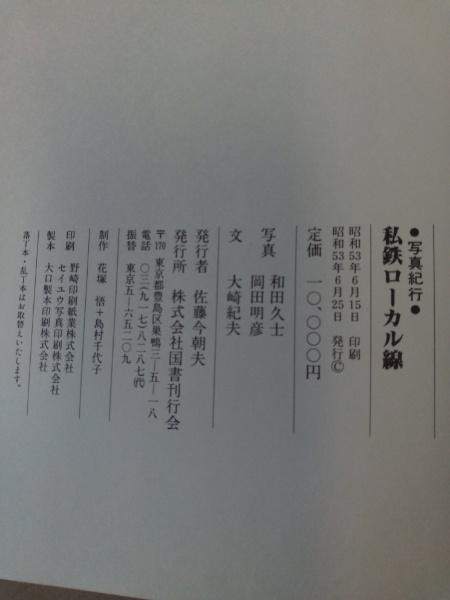 ●写真紀行●
私鉄ローカル線
昭和53年6月15日 印刷
昭和53年6月25日 発行©
定価 一〇、〇〇〇円
写真 和田久士
岡田明彦
文 大崎紀夫
発行者 佐藤今朝夫
発行所 株式会社国書刊行会
〒170 東京都豊島区巣鴨三―五―一八
電話 〇三(九一七)八二八七㈹
振替 東京五―六五二〇九
制作 花塚 悟+島村千代子
印刷 野崎印刷紙業株式会社
セイユウ写真印刷株式会社
製本 大口製本印刷株式会社
落丁本・乱丁本はお取替えいたします。